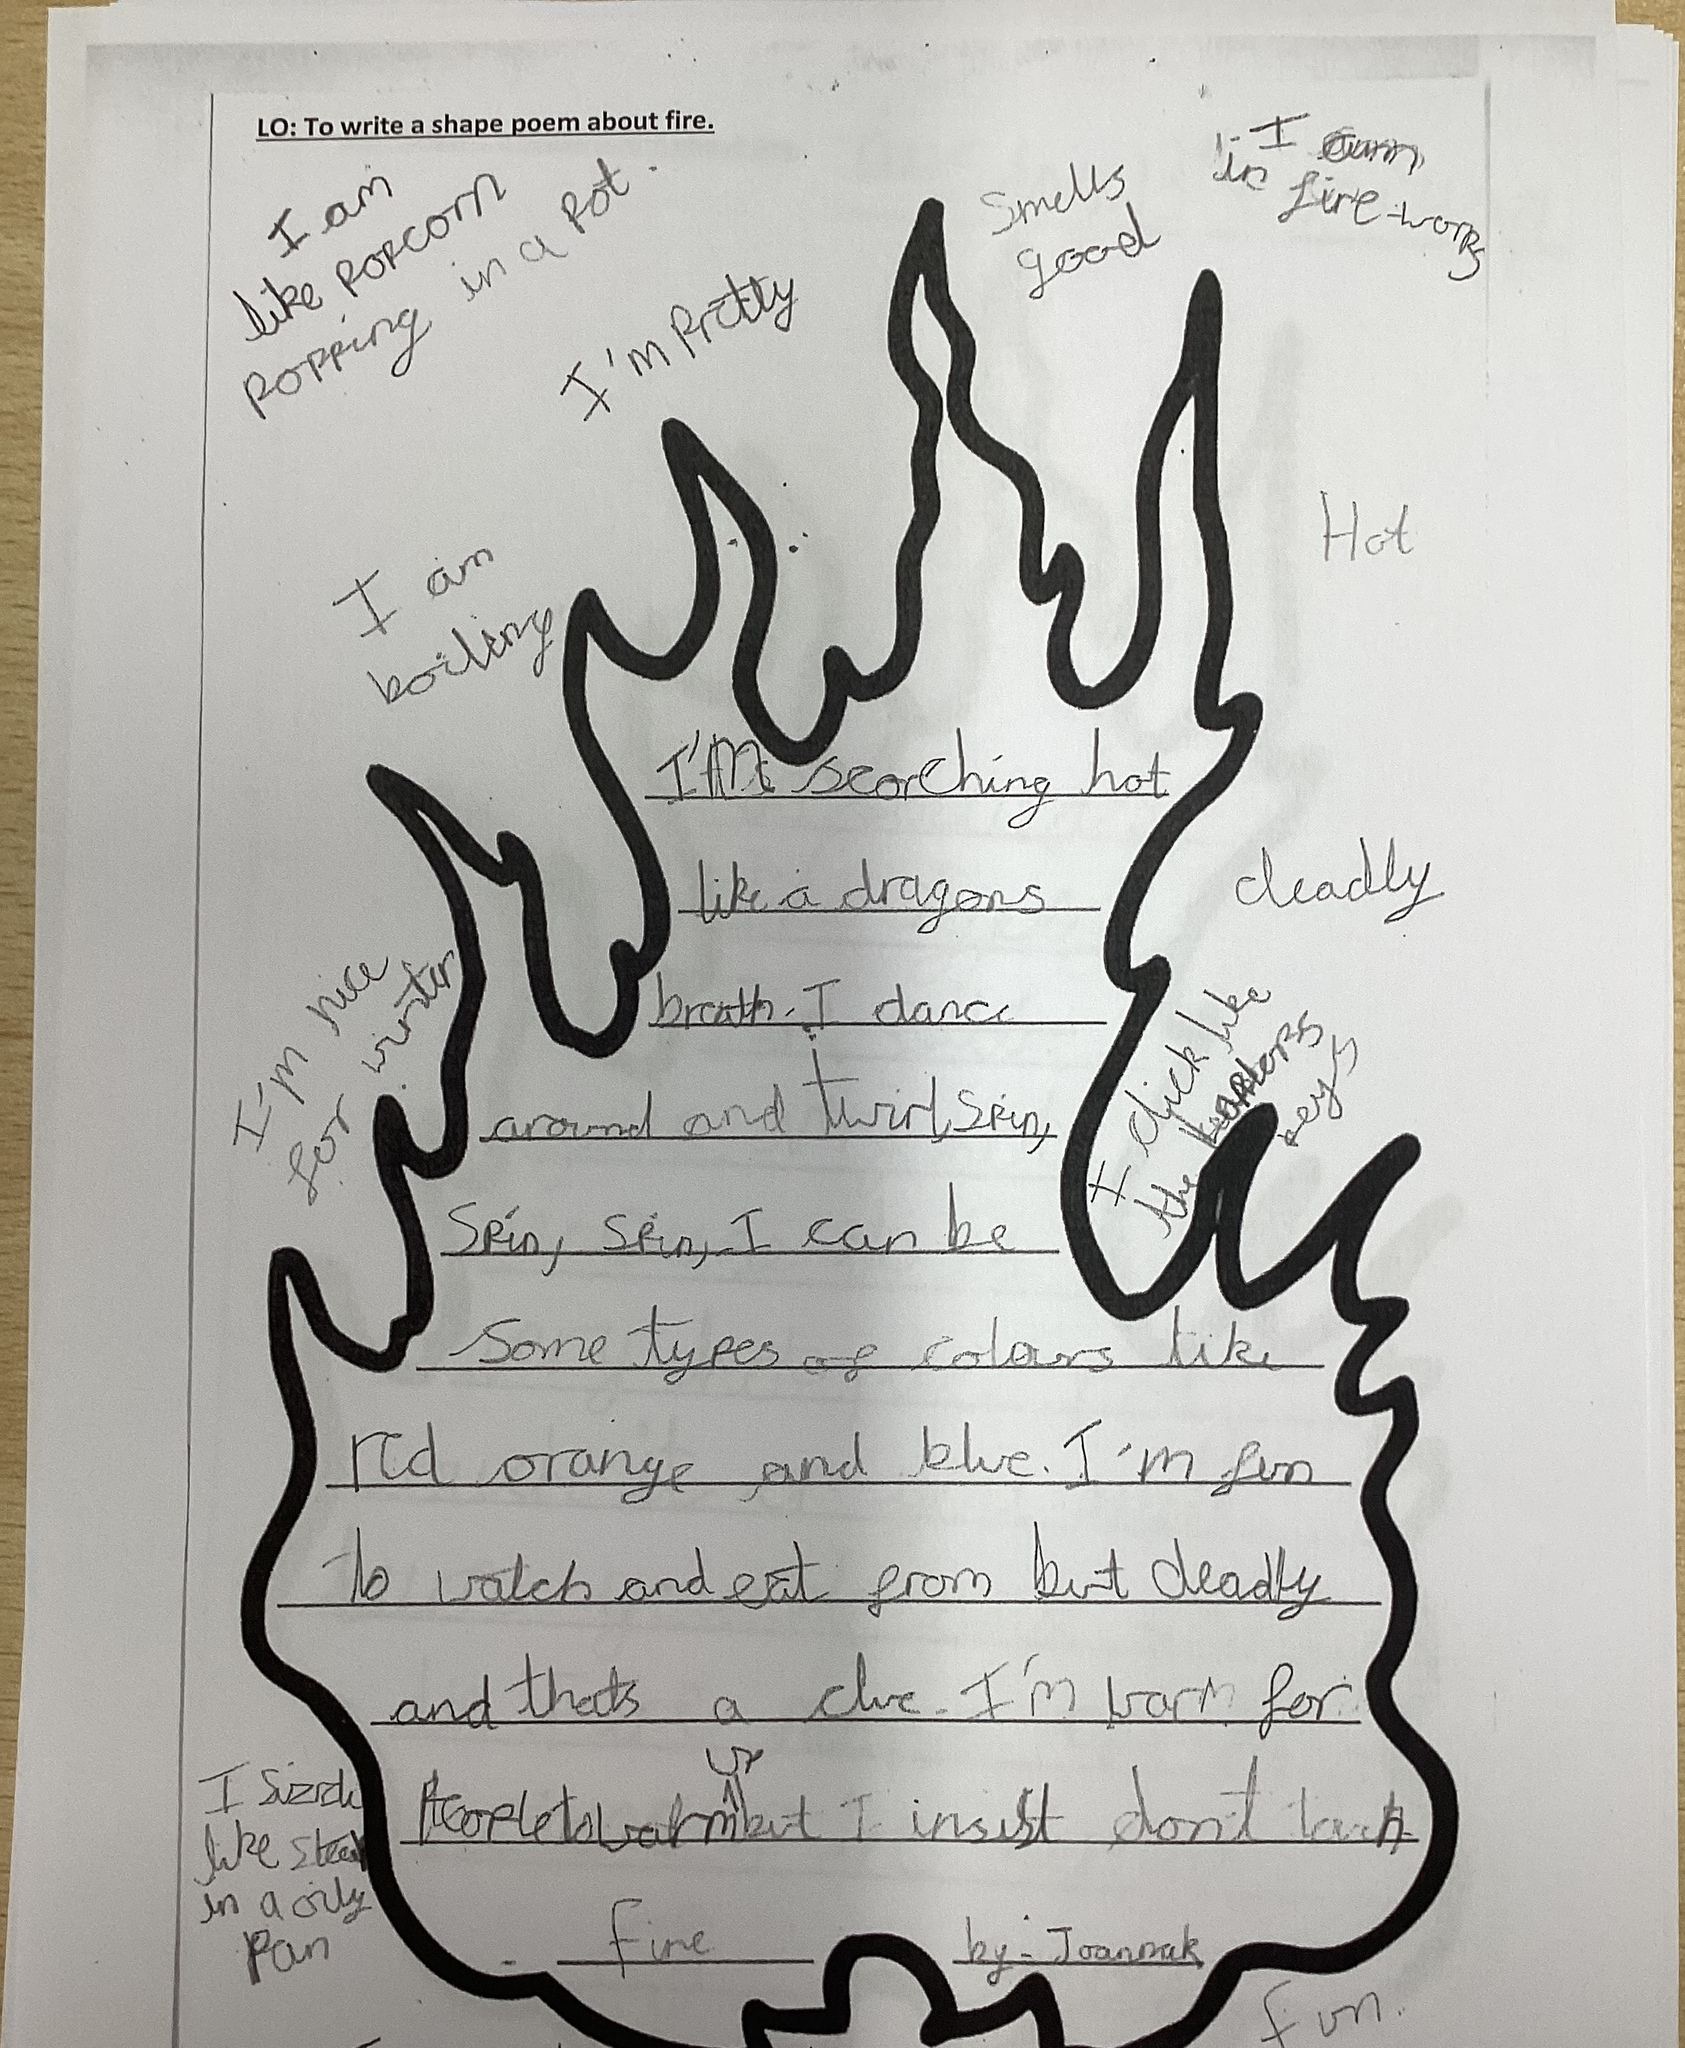 LO: To write a shape poem about fire.
I am
like popcorn
popping in a pot.
I'm Pretty
Smells
good
I am
in fire-works
I am
boiling
Hot
deadly
I'm nice
for winter
I click like
the
keys
I'm scorching hot
like a dragons
breath. I dance
around and twirl, spin,
Spin, spin, I can be
Some types of colours like
red orange and blue. I'm fun
to watch and eat from but deadly
and thats a clue. I'm warm for
up
People to warm but I insist don't touch
Fire by- Joannak
I sizzle
like steak
in a oily
Pan
fun.